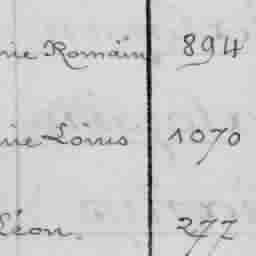 rie Romain 894
rie Louis 1070
Léon. 277